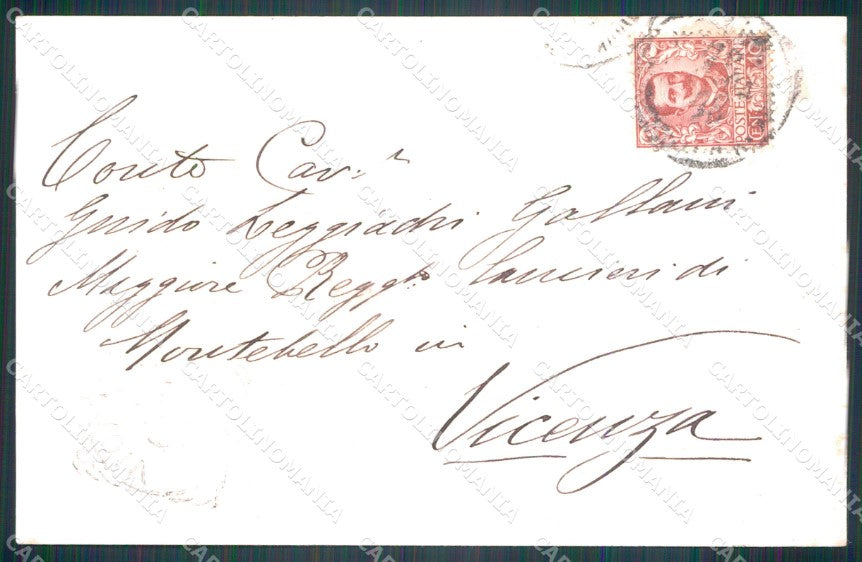 Conte Cav.r
Guido Leggiadri Gallani
Maggiore Regg.to lancieri di
Montebello in
Vicenza
POSTE ITALIANE
CARTOLINOMANIA